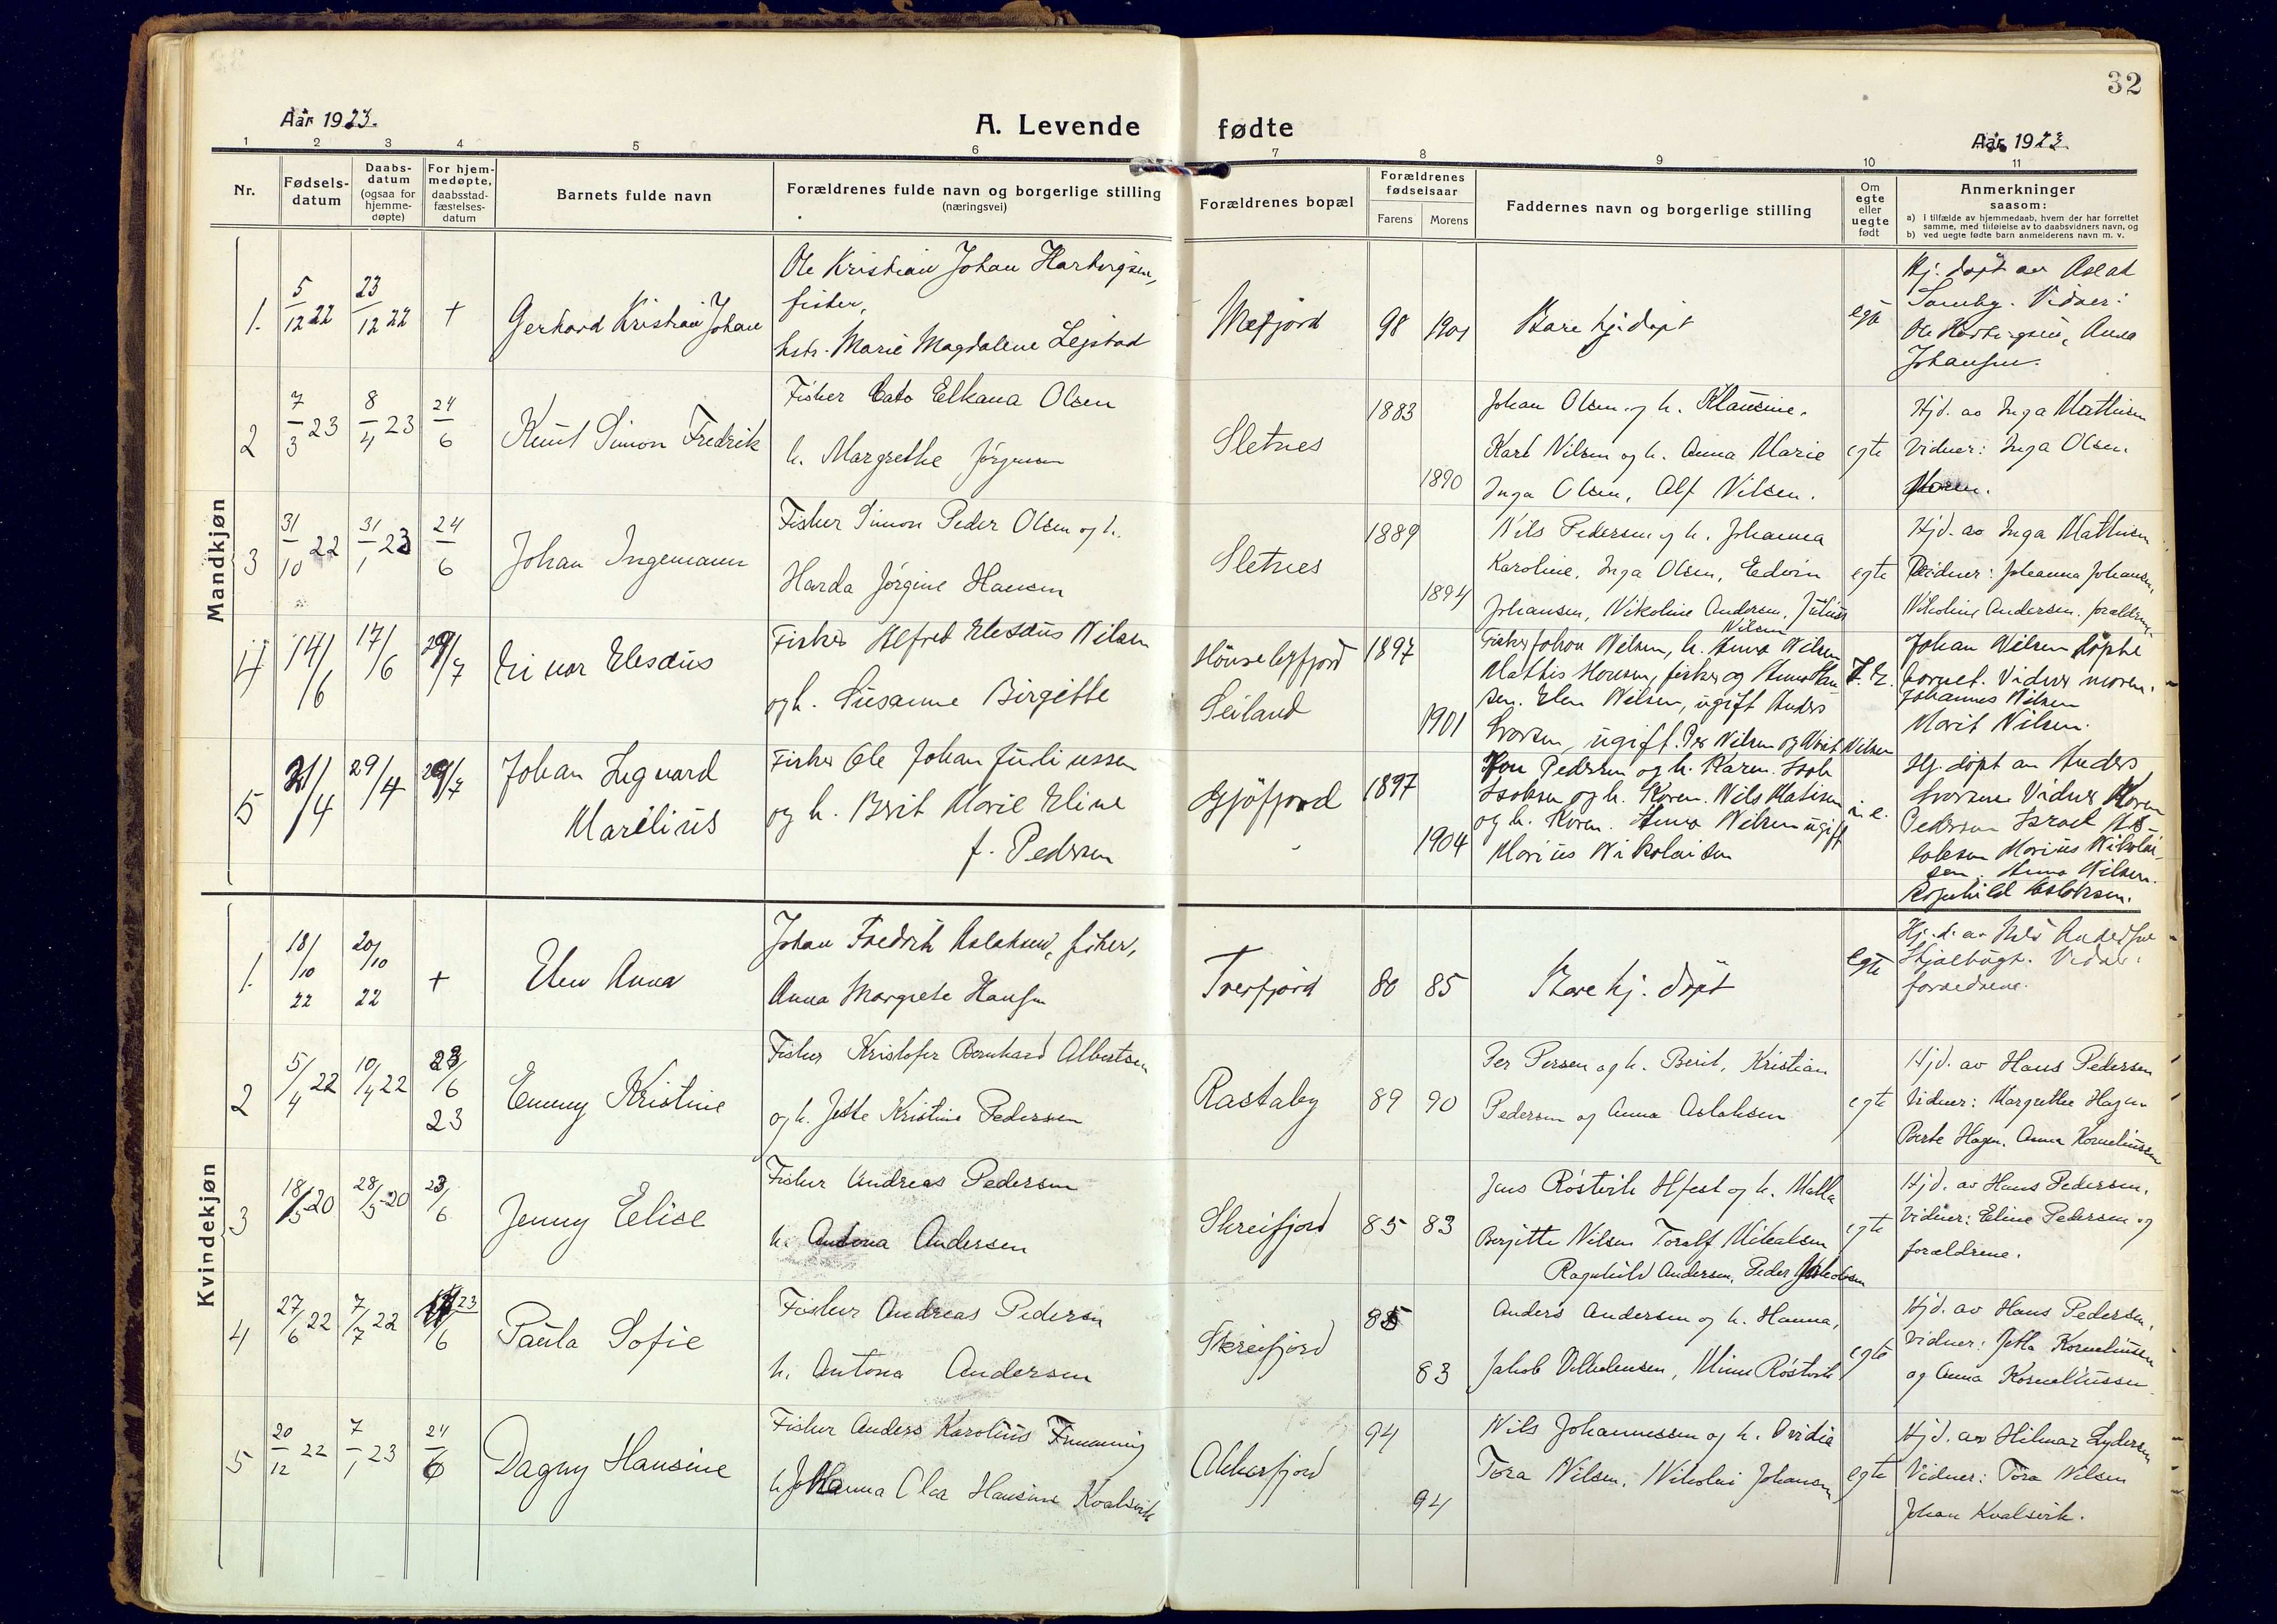 32
Aår 1923.
A. Levende fødte
Aår 1923.
1 2 3 4 5 6 7 8 9 10 11
Nr.
Fødsels-
datum
Daabs-
datum
(ogsaa for
hjemme-
døpte)
For hjem-
medøpte,
daabsstad-
fæstelses-
datum
Barnets fulde navn
Forældrenes fulde navn og borgerlige stilling
(næringsvei)
Forældrenes bopæl
Forældrenes
fødselsaar
Farens Morens
Faddernes navn og borgerlige stilling
Om
egte
eller
uegte
født
Anmerkninger
saasom:
a) i tilfælde av hjemmedaab, hvem der har forrettet
samme, med tilføielse av to daabsvidners navn, og
b) ved uegte fødte barn anmelderens navn m. v.
Mandkjøn
1. 5/12 22 23/12 22 +
Gerhard Kristian Johan
Ole Kristian Johan Hartvigsen,
fisker,
hstr. Marie Magdalene Lejstad
Mefjord
98 1901
Bare hj. døpt
egte
Hj. døpt av Aslak
Samby. Vidner:
Ole Hartvigsen, Anna
Johansen.
2 7/3 23 8/4 23 24/6
Knut Simon Fredrik
Fisker Cato Elkana Olsen
h. Margrethe Jørgensen
Sletnes
1883
1890
Johan Olsen og h. Klausine.
Karl Nilsen og h. Anna Marie
Inga Olsen, Alf Nilsen.
egte
Hjd. av Inga Mathisen
Vidner: Inga Olsen.
Moren.
3 31/10 22 31/1 23 24/6
Johan Ingemann
Fisker Simon Peder Olsen og h.
Harda Jørgine Hansen
Sletnes
1889
1894
Nils Pedersen og h. Johanna
Karoline, Inga Olsen, Edvin
Johansen, Nikoline Andersen, Julius
Nilsen
egte
Hjd. av Inga Mathisen
Vidner: Johanna Johansen,
Nikoline Andersen. forældrene
4 14/6 17/6 29/7
Einar Elesæus
Fisker Alfred Elesæus Nilsen
og h. Susanne Birgitte
Seiland
1897
1901
Fisker Johan Nilsen, h. Anna Nilsen
Mathis Hansen, fisker og Anna Han-
sen. Elen Nilsen, ugift Anders
Ivarsen, ugift. Per Nilsen og Marit Nilsen
Johan Nilsen døpte
barnet. Vidner moren.
Johannes Nilsen
Marit Nilsen.
5 21/4 29/4 29/7
Johan Ingvard
Marelius
Fisker Ole Johan Juliussen
og h. Berit Marie Eline
f. Pedersen
Gjøfjord
1897
1904
Jon Pedersen og h. Karen. Isak
Isaksen og h. Karen. Nils Matisen
og h. Karen. Anna Nilsen ugift
Marius Nikolaisen
i. e.
Hj. døpt av Anders
Ivarsen Vidner Karen
Pedersen Israel As-
laksen Marius Nikolai-
sen. Anna Nilsen.
Ragnhild Aslaksen.
Kvindekjøn
1. 18/10 22 20/10 22 +
Elen Anna
Johan Fredrik Aslaksen, fisker,
Anna Margrete Hansen
Tverfjord
80 85
Bare hj. døpt
egte
Vidner:
forældrene.
2 5/4 22 10/4 22 23/6 23
Emmy Kristine
Fisker Kristofer Bernhard Albertsen
og h. Jette Kristine Pedersen
Rastaby
89 90
Per Persen og h. Berit, Kristian
Pedersen og Anna Aslaksen
egte
Hjd. av Hans Pedersen
Vidner: Margrethe Hagen
Berte Hagen. Anna Korneliussen
3 18/5 20 28/5 20 23/6
Jenny Elise
Fisker Andreas Pedersen
h. Antona Andersen
Skreifjord
85 83
Jens Røstvik og h. Malla
Bergitte Nilsen Toralf Mikalsen
Ragnhild Andersen, Peder
egte
Hjd. av Hans Pedersen.
Vidner: Eline Pedersen og
forældrene.
4 27/6 22 7/7 22 23/6
Paula Sofie
Fisker Andreas Pedersen
h. Antona Andersen
Skreifjord
85
83
Anders Andersen og h. Hanna,
Jakob Vilhelmsen, Minna Røstvik
egte
Hjd. av Hans Pedersen,
Vidner: Jetta Korneliussen
og Anna Korneliussen
5 20/12 22 7/1 23 24/6
Dagny Hansine
Fisker Anders Karolius
h. Johanna Olea Hansine Kvalsvik
Akkarfjord
94
94
Nils Johannessen og h. Ovidia
Tora Nilsen, Nikolai Johansen
egte
Hjd. av Hilmar Lydersen
Vidner: Tora Nilsen
Johan Kvalsvik.